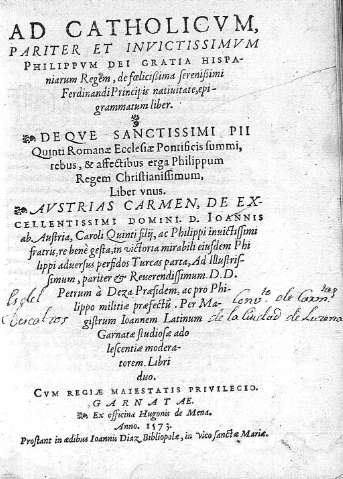 AD CATHOLICVM,
PARITER ET INVICTISSIMVM
PHILIPPVM DEI GRATIA HISPA-
niarum Regem, de fœlicissima serenissimi
Ferdinandi Principis natiuitate, epi-
grammatum liber.
DEQVE SANCTISSIMI PII
Quinti Romanæ Ecclesiæ Pontificis summi,
rebus, & affectibus erga Philippum
Regem Christianissimum,
Liber vnus.
AVSTRIAS CARMEN, DE EX-
CELLENTISSIMI DOMINI. D. IOANNIS
ab Austria, Caroli Quinti filij, ac Philippi inuictissimi
fratris, re bene gesta, in victoria mirabili eiusdem Phi
lippi aduersus perfidos Turcas parta, Ad Illustris-
simum, pariter & Reuerendissimum D.D.
Petrum à Deza Præsidem, ac pro Phi-
lippo militiæ præfectũ. Per Ma-
gistrum Ioannem Latinum
Garnatæ studiosæ ado
lescentiæ modera-
torem. Libri
duo.
Es del Conu.to de Carm.tas
Descalços de la Ciudad de Lucena
CVM REGIÆ MAIESTATIS PRIVILEGIO.
GARNATAE.
Ex officina Hugonis de Mena.
Anno. 1573.
Prostant in ædibus Ioannis Diaz Bibliopolæ, in vico sanctæ Mariæ.